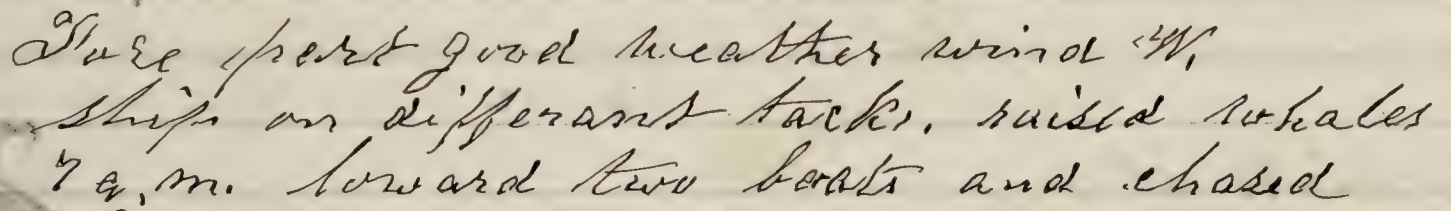 Fore part good weather wind W,
ship on differant tacks, raised whales
7 a,m. loward two boats and chased